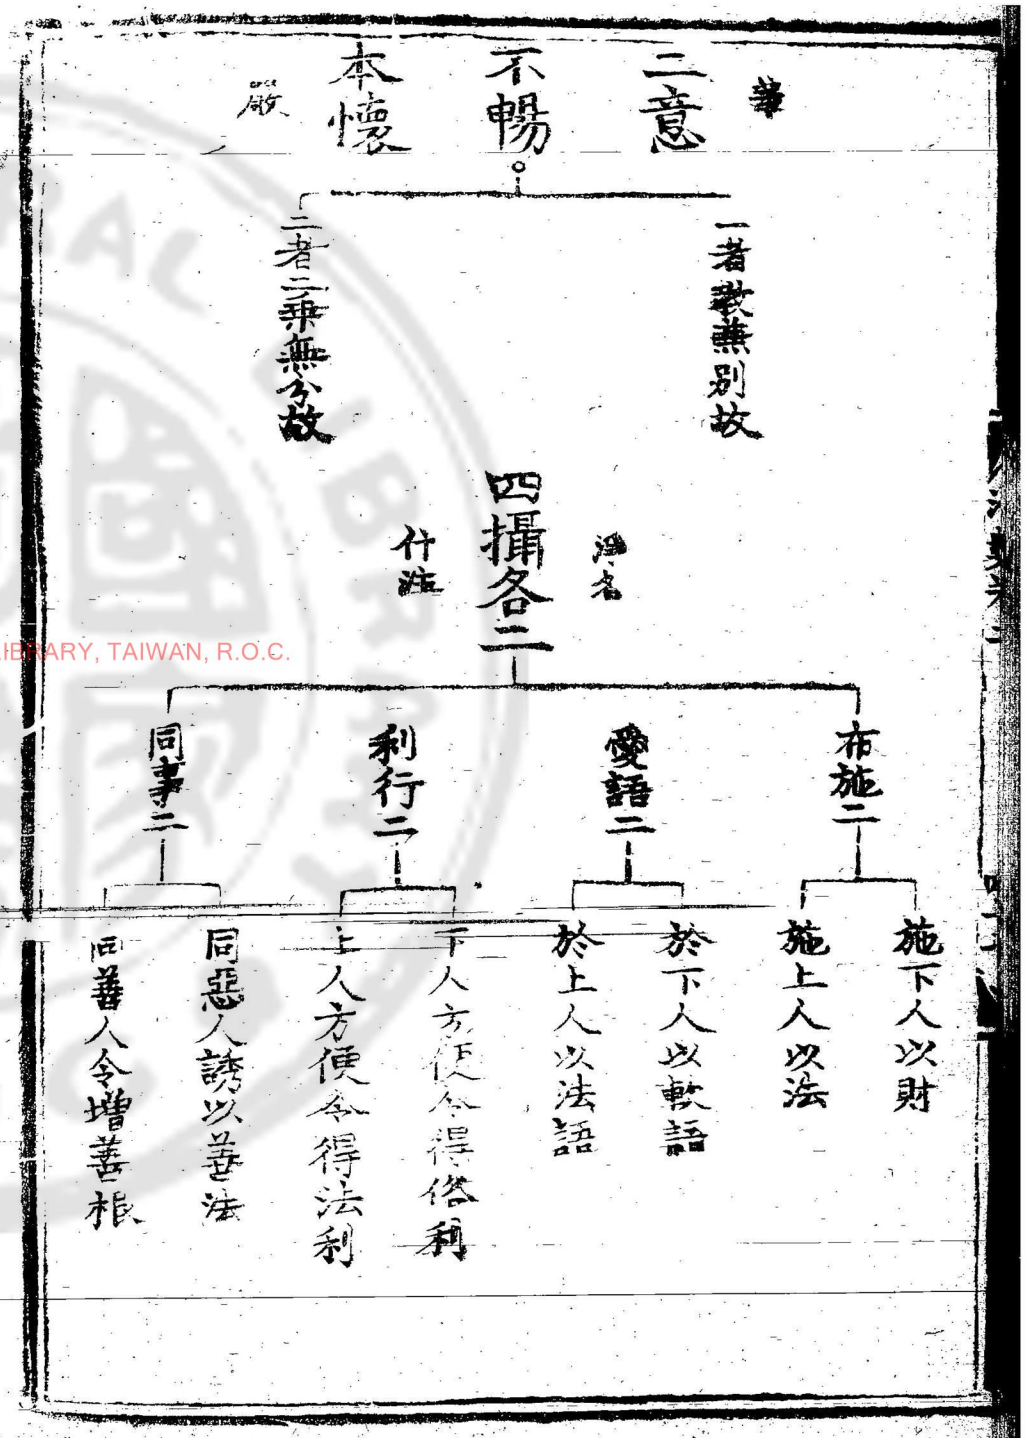 華
二意
不暢
本懷
嚴
一者教兼別故
二者二乘無分故
淨名
四攝各二
什注
布施二
施下人以財
施上人以法
愛語二
於下人以軟語
於上人以法語
利行二
下人方便令得俗利
上人方便令得法利
同事二
同惡人誘以善法
同善人令增善根
LIBRARY, TAIWAN, R.O.C.